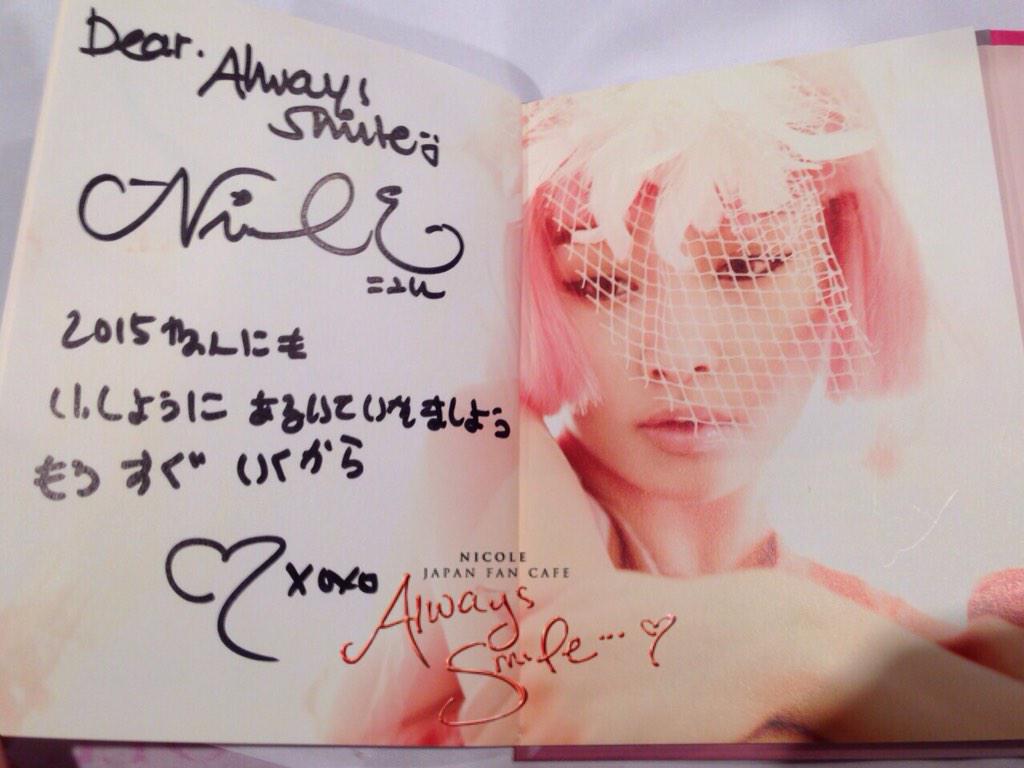 Dear. Always
Smile:)
Nicole
ニコル
2015 なんにも
いっしょうに あるいていきましょう
もう すぐ いくから
xoxo
NICOLE
JAPAN FAN CAFE
Always
Smile...